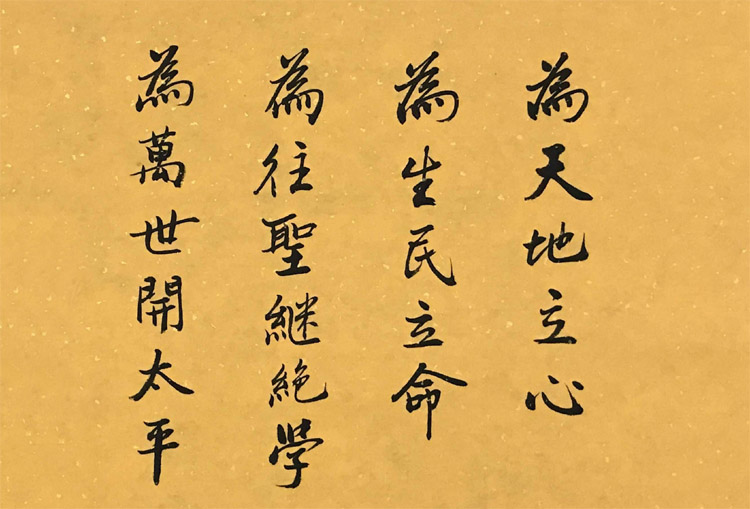 為天地立心
為生民立命
為往聖継絶学
為萬世開太平